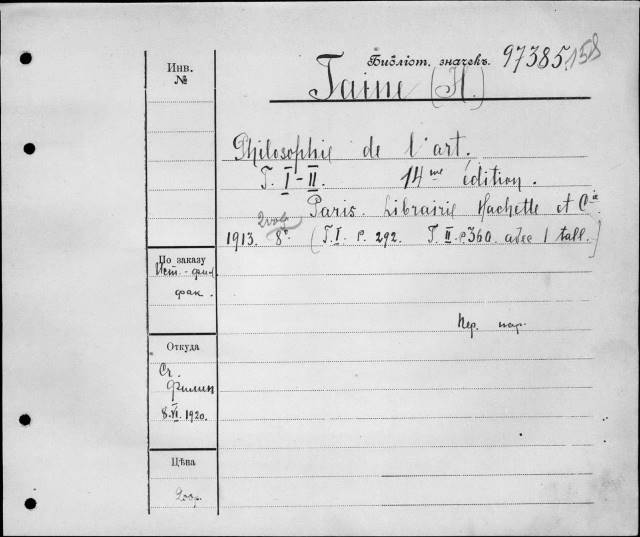 Инв.
№
Библіот. значекъ. 97385 158
Taine (H.)
Philosophie de l'art.
T. I-II. 14me édition.
Paris. Librairie Hachette et Cie
2 vol.
1913. 8°. (T. I. p. 292. T. II. p 360. avec 1 tall.)
По заказу
Ист.-фил.
фак.
Пер. кор.
Откуда
Ст.
8.VI.1920.
Цѣна
200р.